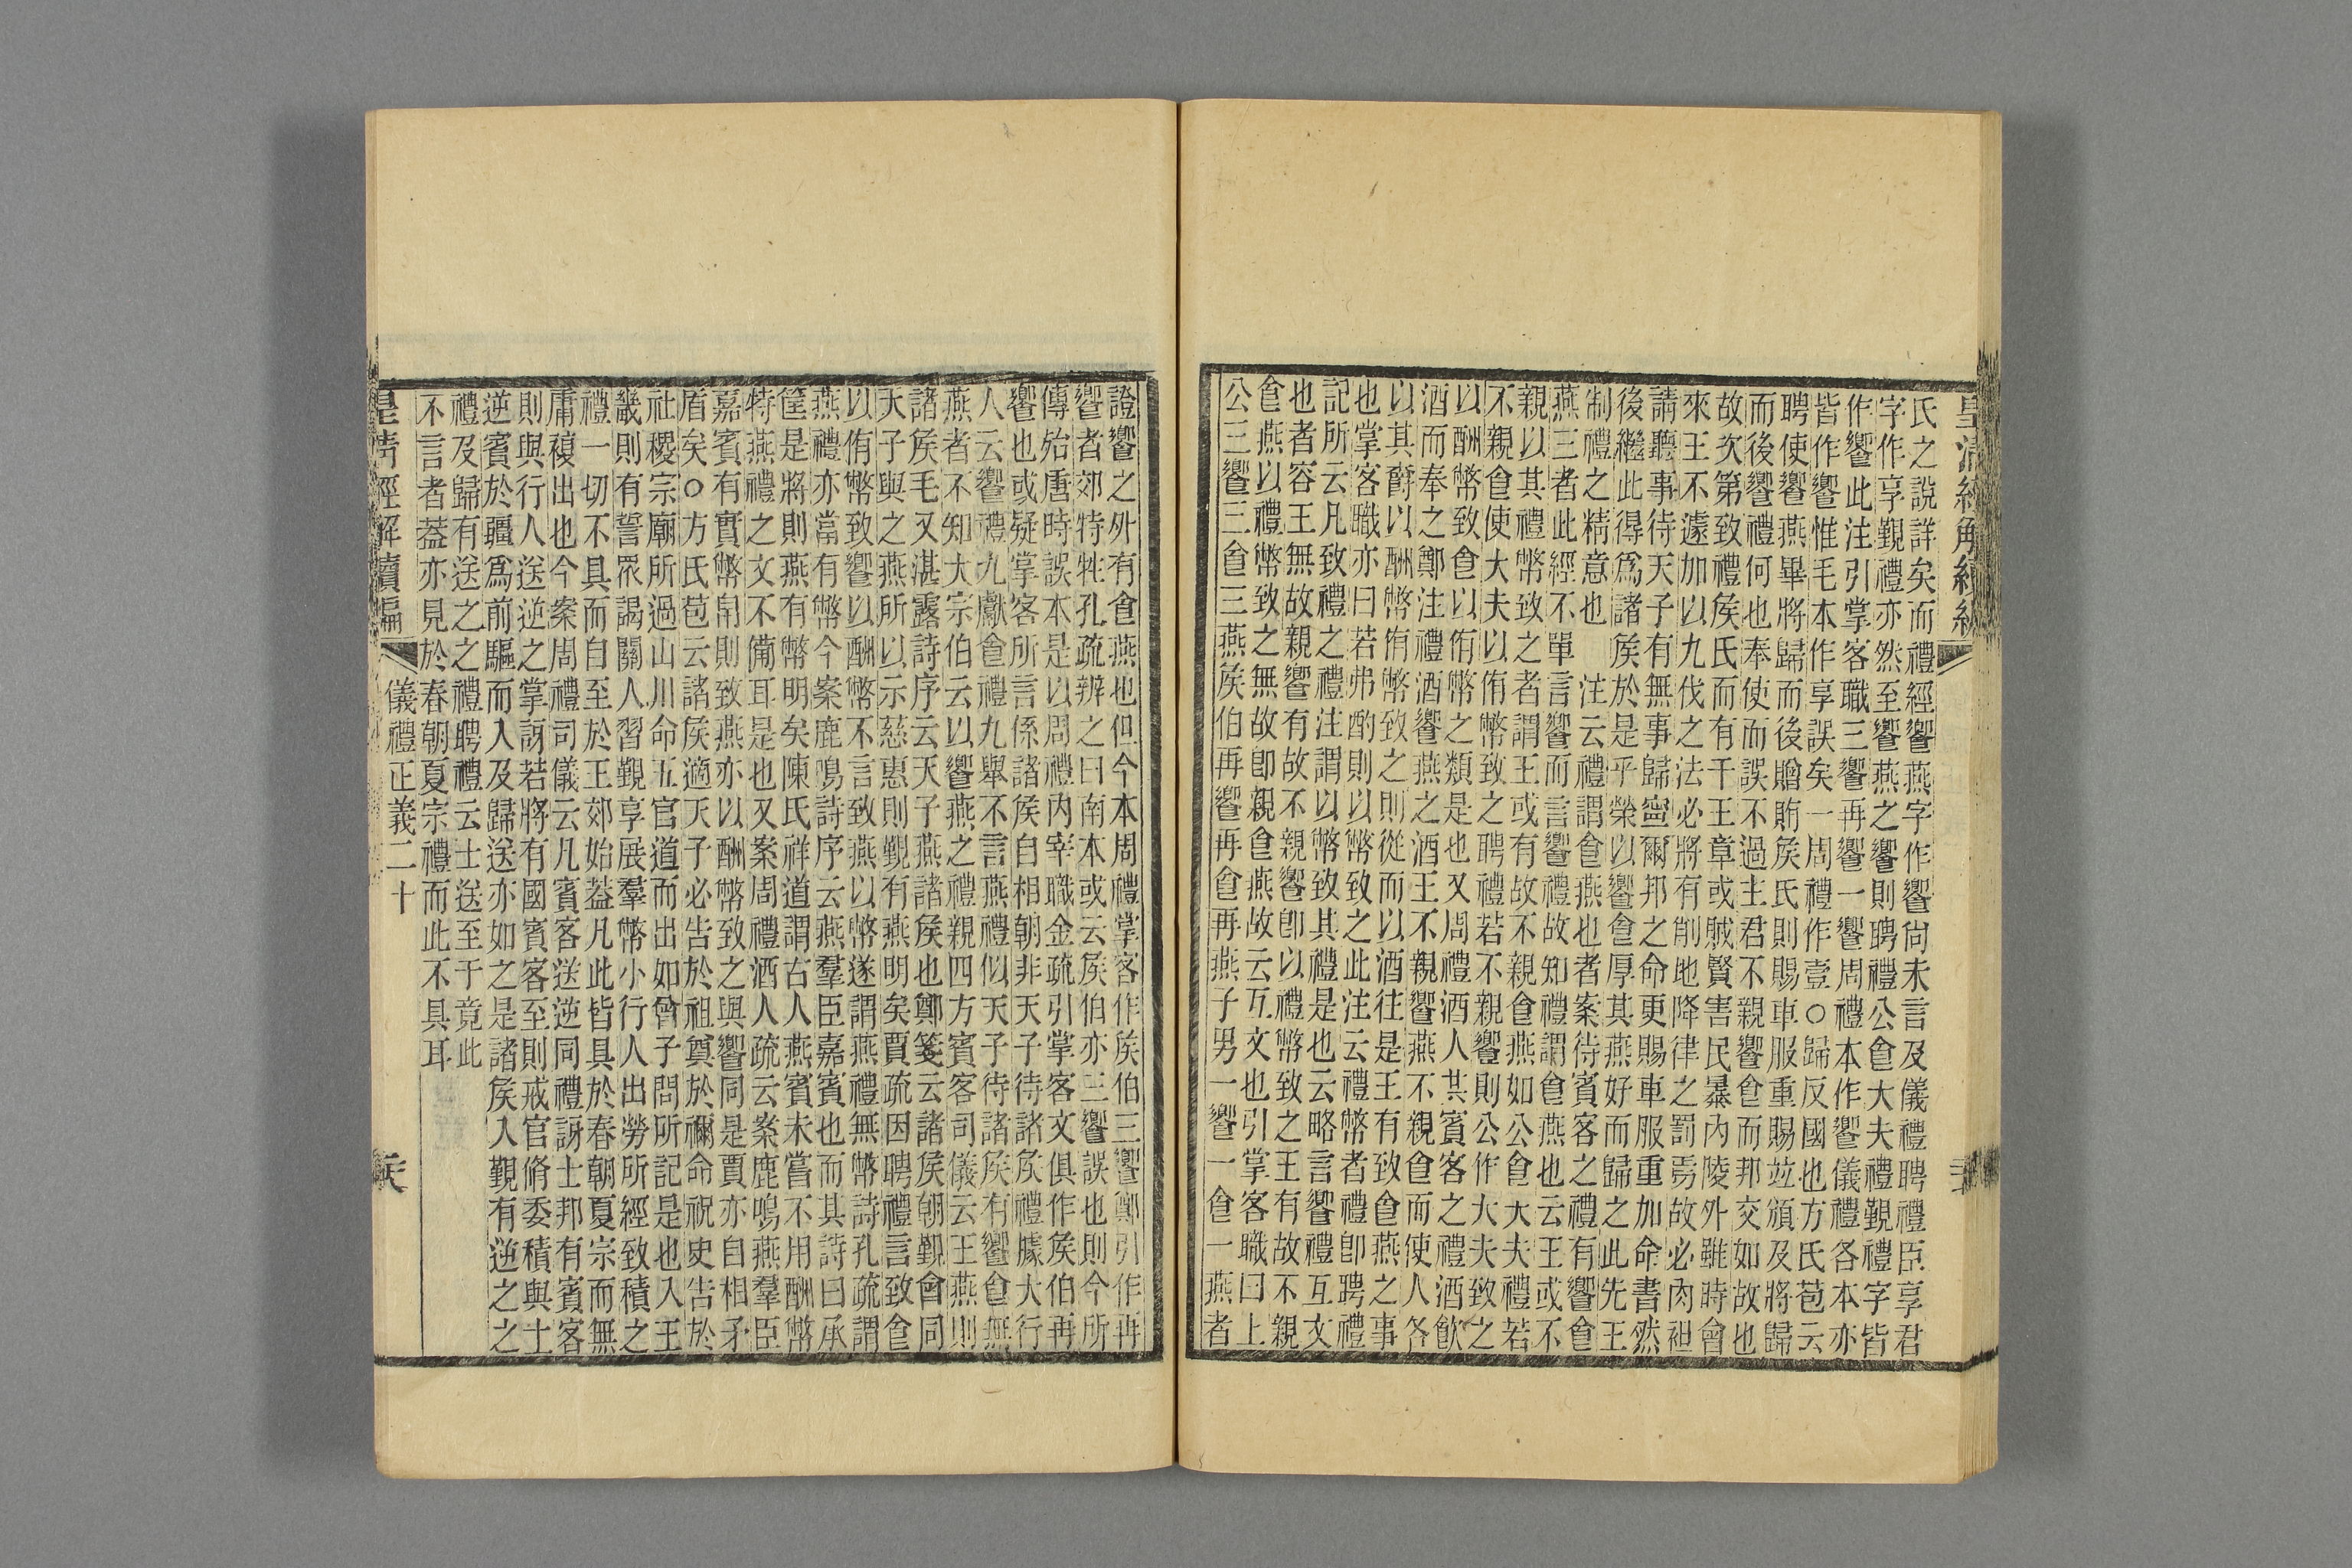 氏之說詳矣而禮經饗燕字作饗尙未言及儀禮聘禮臣享君
字作享覲禮亦然至饗燕之饗則聘禮公食大夫禮覲禮字皆
作饗此注引掌客職三饗再饗一饗周禮本作饗儀禮各本亦
皆作饗惟毛本作享誤矣一周禮作壹○歸反國也方氏苞云
聘使饗燕畢將歸而後贈賄侯氏則賜車服重賜竝頒及將歸
而後饗禮何也奉使而誤不過主君不親饗食而邦交如故也
故次第致禮侯氏而有干王章或賊賢害民暴內陵外雖時會
來王不遽加以九伐之法必將有削地降律之罰焉故必肉袒
請聽事待天子有無事歸寧爾邦之命更賜車服重加命書然
後繼此得爲諸侯於是乎榮以饗食厚其燕好而歸之此先王
制禮之精意也　注云禮謂食燕也者案待賓客之禮有饗食
燕三者此經不單言饗而言饗禮故知禮謂食燕也云王或不
親以其禮幣致之者謂王或有故不親食燕如公食大夫禮若
不親食使大夫以侑幣致之聘禮若不親饗則公作大夫致之
以酬幣致食以侑幣之類是也又周禮酒人其賓客之禮酒飮
酒而奉之鄭注禮酒饗燕之酒王不親饗燕不親食而使人各
以其爵以酬幣侑幣致之則從而以酒往是王有致食燕之事
也掌客職亦曰若弗酌則以幣致之此注云禮幣者禮卽聘禮
記所云凡致禮之禮注謂以幣致其禮是也云略言饗禮互文
也者容王無故親饗有故不親饗卽以禮幣致之王有故不親
食燕以禮幣致之無故卽親食燕故云互文也引掌客職曰上
公三饗三食三燕侯伯再饗再食再燕子男一饗一食一燕者
證饗之外有食燕也但今本周禮掌客作侯伯三饗鄭引作再
饗者郊特牲孔疏辨之曰南本或云侯伯亦三饗誤也則今所
傳殆唐時誤本是以周禮內宰職金疏引掌客文俱作侯伯再
饗也或疑掌客所言係諸侯自相朝非天子待諸侯禮據大行
人云饗禮九獻食禮九舉不言燕禮似天子待諸侯有饗食無
燕者不知大宗伯云以饗燕之禮親四方賓客司儀云王燕則
諸侯毛又湛露詩序云天子燕諸侯也鄭箋云諸侯朝覲會同
天子與之燕所以示慈惠則覲有燕明矣賈疏因聘禮言致食
以侑幣致饗以酬幣不言致燕以幣遂謂燕禮無幣詩孔疏謂
燕禮亦當有幣今案鹿鳴詩序云燕羣臣嘉賓也而其詩曰承
筐是將則燕有幣明矣陳氏祥道謂古人燕賓未嘗不用酬幣
特燕禮之文不備耳是也又案周禮酒人疏云案鹿鳴燕羣臣
嘉賓有實幣帛則致燕亦以酬幣致之與饗同是賈亦自相矛
盾矣○方氏苞云諸侯適天子必告於祖奠於禰命祝史告於
社稷宗廟所過山川命五官道而出如曾子問所記是也入王
畿則有誓眾謁關人習覲享展羣幣小行人出勞所經致積之
禮一切不具而自至於王郊始葢凡此皆具於春朝夏宗而無
庸複出也今案周禮司儀云凡賓客送逆同禮訝士邦有賓客
則與行人送逆之掌訝若將有國賓客至則戒官脩委積與士
逆賓於疆爲前驅而入及歸送亦如之是諸侯入覲有逆之之
禮及歸有送之之禮聘禮云士送至于竟此
不言者葢亦見於春朝夏宗禮而此不具耳
皇淸經解續編　儀禮正義二十